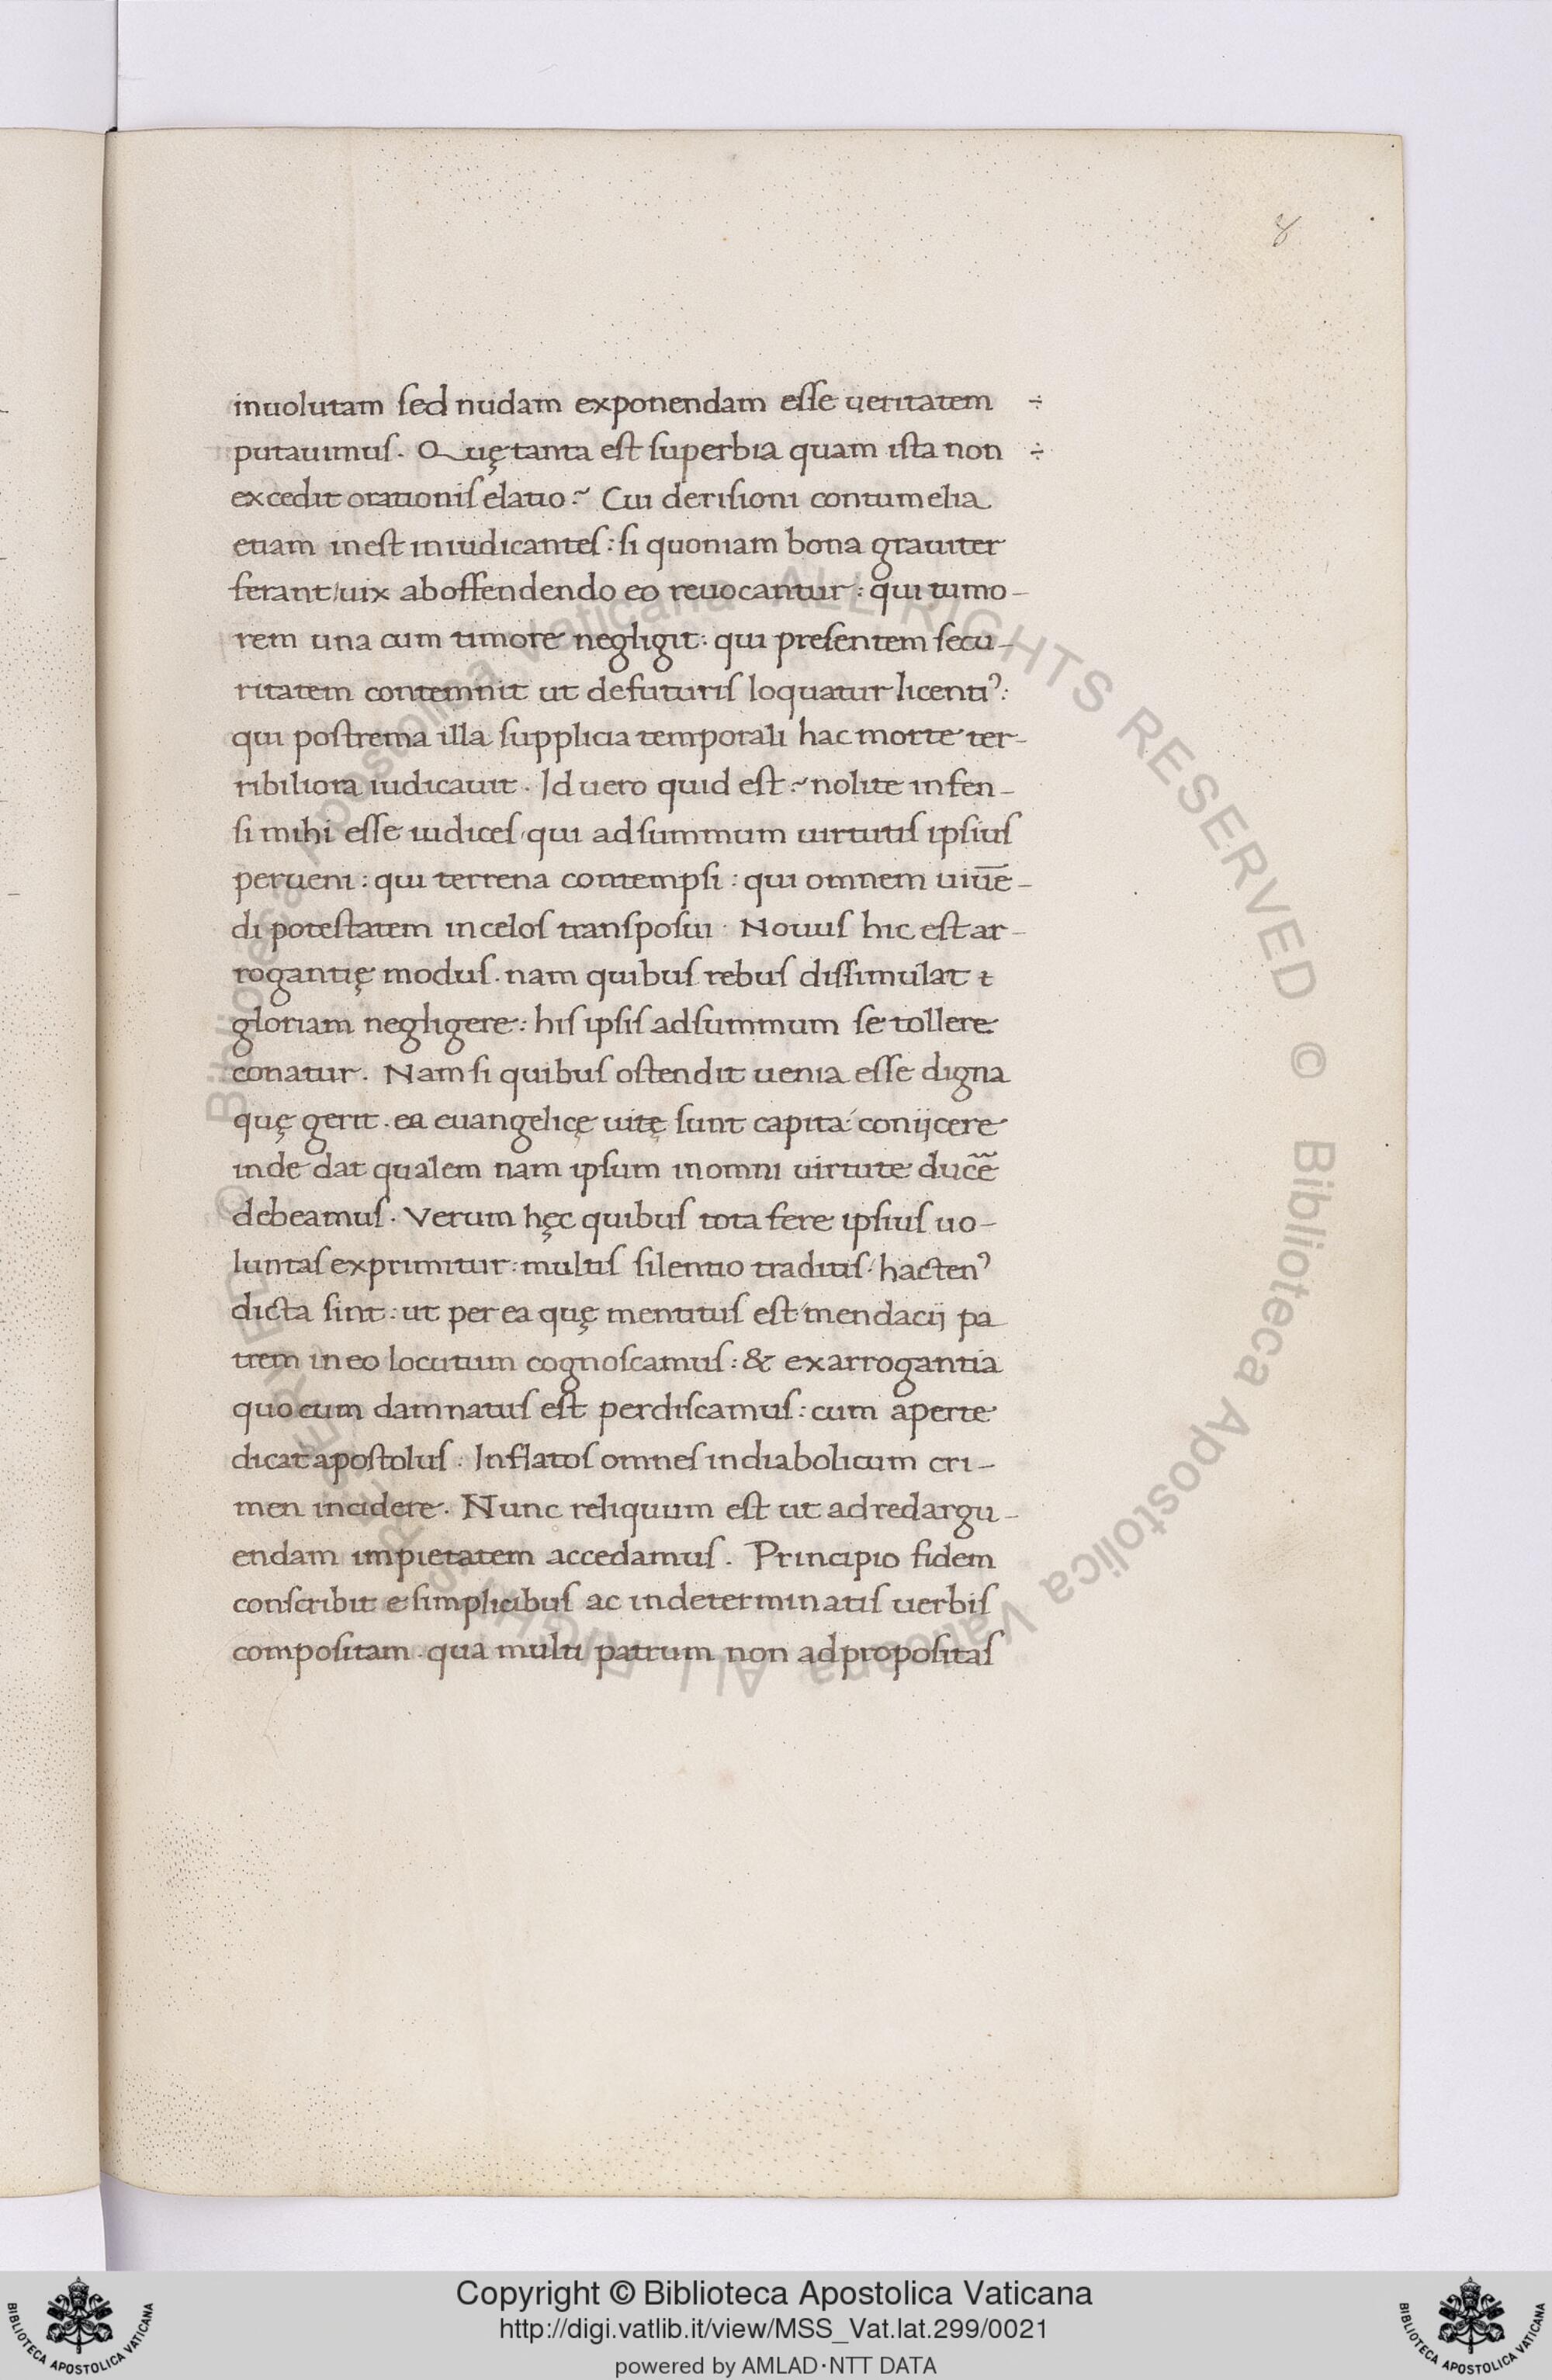 8
inuolutam sed nudam exponendam esse ueritatem ÷
putauimus. Quę tanta est superbia quam ista non ÷
excedit orationis elatio? Cui derisioni contumelia
etiam inest in iudicantes: si quoniam bona grauiter
ferant/uix ab offendendo eo reuocantur: qui tumo-
rem una cum timore negligit: qui presentem secu-
ritatem contemnit ut de futuris loquatur licentiꝰ:
qui postrema illa supplicia temporali hac morte ter-
ribiliora iudicauit. Id uero quid est? nolite infen-
si mihi esse iudices, qui ad summum uirtutis ipsius
perueni: qui terrena contempsi: qui omnem uiuē-
di potestatem in celos transposui. Nouus hic est ar-
rogantię modus. nam quibus rebus dissimulat ⁊
gloriam negligere: his ipsis ad summum se tollere
conatur. Nam si quibus ostendit uenia esse digna
quę gerit. ea euangelicę uitę sunt capita: conijcere
inde dat qualem nam ipsum in omni uirtute ducẽ
debeamus. Verum hęc quibus tota fere ipsius uo-
luntas exprimitur: multis silentio traditis: hactenꝰ
dicta sint: ut per ea quę mentitus est mendacij pa
trem in eo locutum cognoscamus: & ex arrogantia
quocum damnatus est perdiscamus: cum aperte
dicat apostolus: Inflatos omnes in diabolicum cri-
men incidere. Nunc reliquum est ut ad redargu-
endam impietatem accedamus. Principio fidem
conscribit e simplicibus ac indeterminatis uerbis
compositam. qua multi patrum non ad propositas
© Biblioteca Apostolica Vaticana ALL RIGHTS RESERVED © Biblioteca Apostolica Vaticana ALL RIGHTS RESERVED
Copyright © Biblioteca Apostolica Vaticana
http://digi.vatlib.it/view/MSS_Vat.lat.299/0021
powered by AMLAD·NTT DATA
BIBLIOTECA APOSTOLICA VATICANA
BIBLIOTECA APOSTOLICA VATICANA